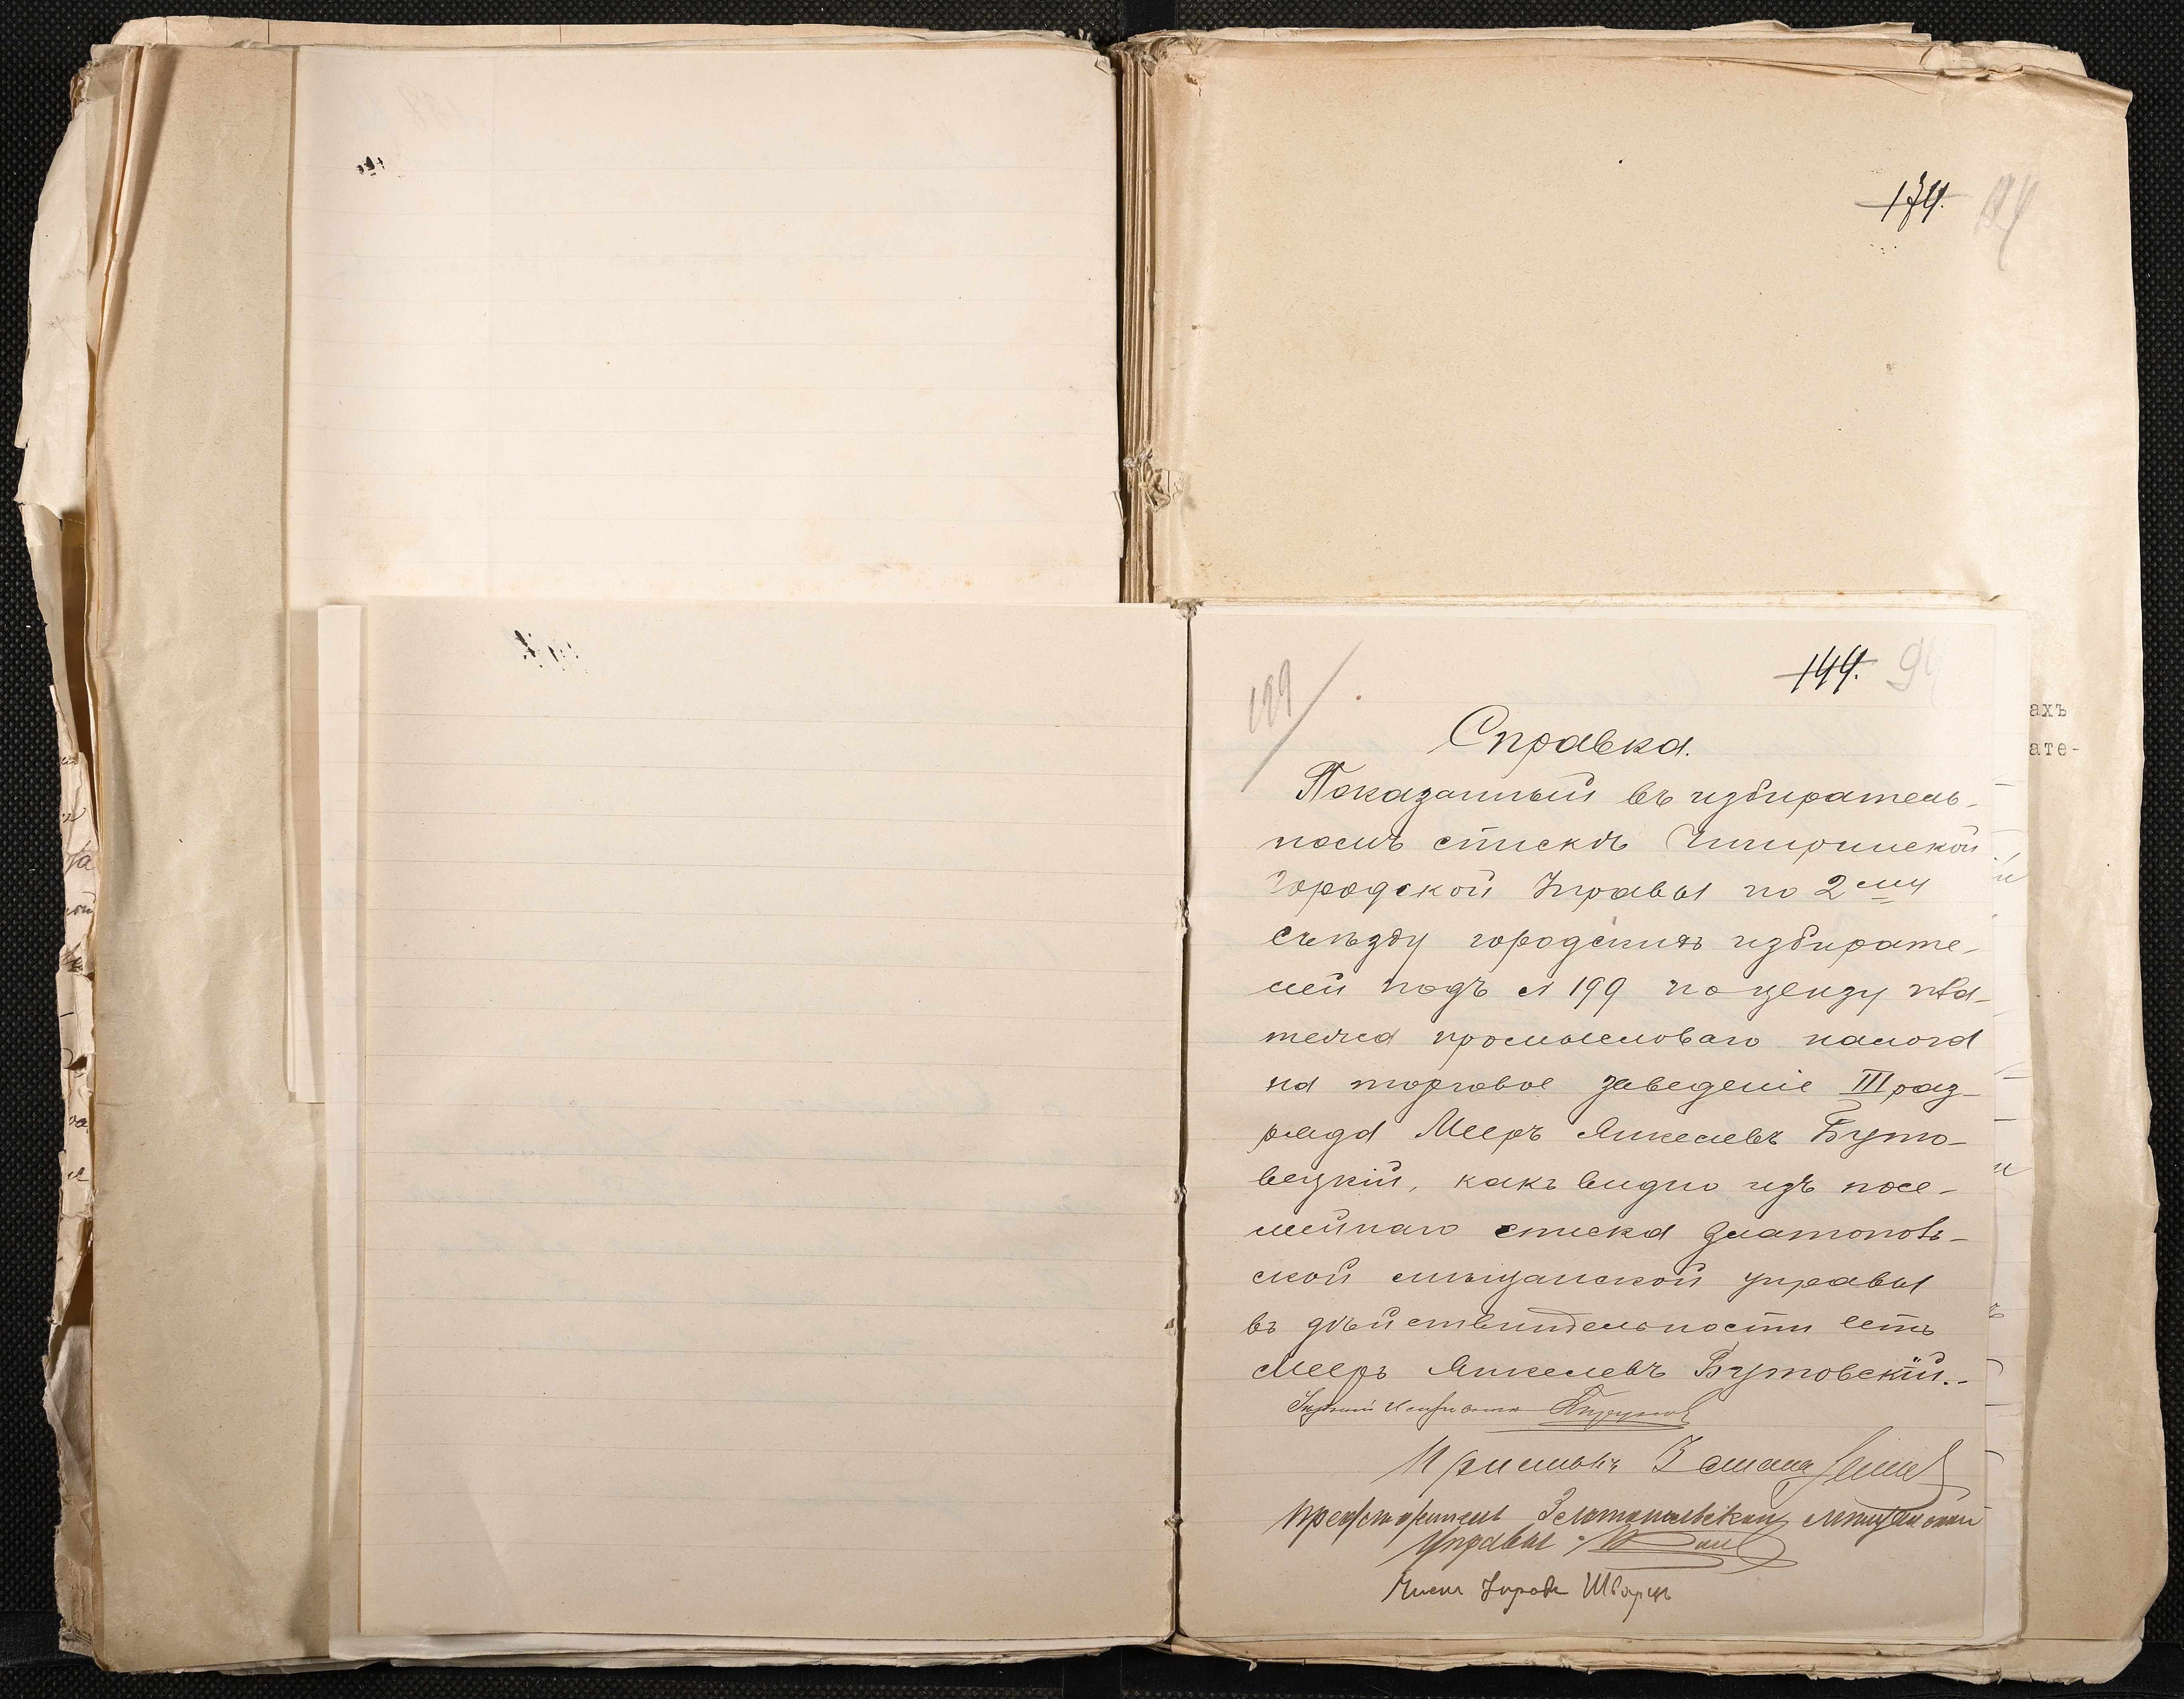 174.
144.
199
Справка.
Показанный въ избиратель-
номъ списке Чигиринской
Городской Управы по 2му
съѣзду городскихъ избирате-
лей подъ № 199 по цензу пла-
тежа промысловаго налога
на торговое заведеніе III раз-
ряда Мееръ Янкелевъ Буто-
вецкій, какъ видно изъ посе-
мейнаго списка Златополь-
ской мѣщанской управы
въ дѣйствительности есть
Мееръ Янкелевъ Бутовскій.-
Уѣздный Исправникъ
Приставъ
Представитель Златопольской мѣщанской
Управы
Членъ Управы Шварцъ
ахъ
ате-